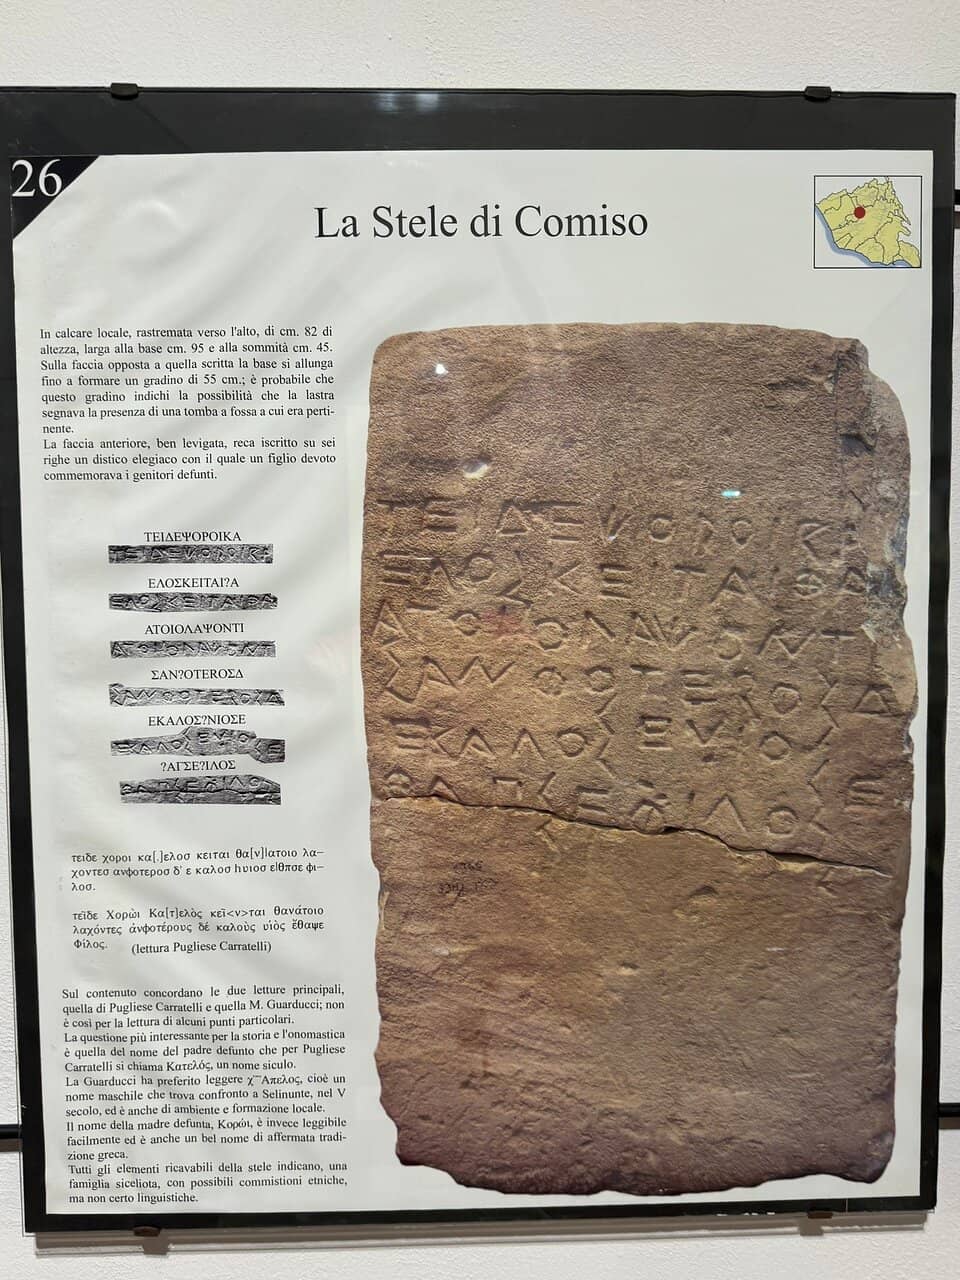 26
La Stele di Comiso
In calcare locale, rastremata verso l'alto, di cm. 82 di
altezza, larga alla base cm. 95 e alla sommità cm. 45.
Sulla faccia opposta a quella scritta la base si allunga
fino a formare un gradino di 55 cm.; è probabile che
questo gradino indichi la possibilità che la lastra
segnava la presenza di una tomba a fossa a cui era perti-
nente.
La faccia anteriore, ben levigata, reca iscritto su sei
righe un distico elegiaco con il quale un figlio devoto
commemorava i genitori defunti.
ΤΕΙΔΕΨΟΡΟΙΚΑ
ΕΛΟΣΚΕΙΤΑΙ?Α
ΑΤΟΙΟΛΑΨΟΝΤΙ
ΣΑΝ?ΟΤΕΡΟΣΔ
ΕΚΑΛΟΣ?ΝΙΟΣΕ
?ΑΓΣΕ?ΙΛΟΣ
τειδε χοροι κα[.]ελοσ κειται θα[ν]ιατοιο λα–
χοντεσ ανφοτεροσ δ' ε καλοσ hυιοσ ειθπσε φι–
λοσ.
τεῖδε Χορῶι Κα[τ]ελὸς κεῖ<ν>ται θανάτοιο
λαχόντες ἀνφοτέρους δέ καλοὺς υἱὸς ἔθαψε
Φίλος. (lettura Pugliese Carratelli)
Sul contenuto concordano le due letture principali,
quella di Pugliese Carratelli e quella M. Guarducci; non
è così per la lettura di alcuni punti particolari.
La questione più interessante per la storia e l'onomastica
è quella del nome del padre defunto che per Pugliese
Carratelli si chiama Κατελός, un nome siculo.
La Guarducci ha preferito leggere χ᾽῎Απελος, cioè un
nome maschile che trova confronto a Selinunte, nel V
secolo, ed è anche di ambiente e formazione locale.
Il nome della madre defunta, Κορώι, è invece leggibile
facilmente ed è anche un bel nome di affermata tradi-
zione greca.
Tutti gli elementi ricavabili della stele indicano, una
famiglia siceliota, con possibili commistioni etniche,
ma non certo linguistiche.